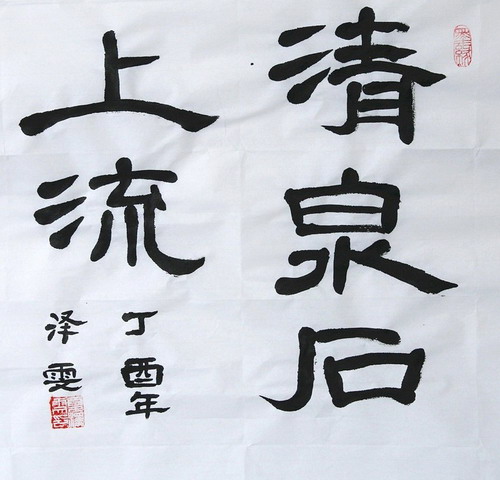 清泉石
上流
丁酉年
泽雯